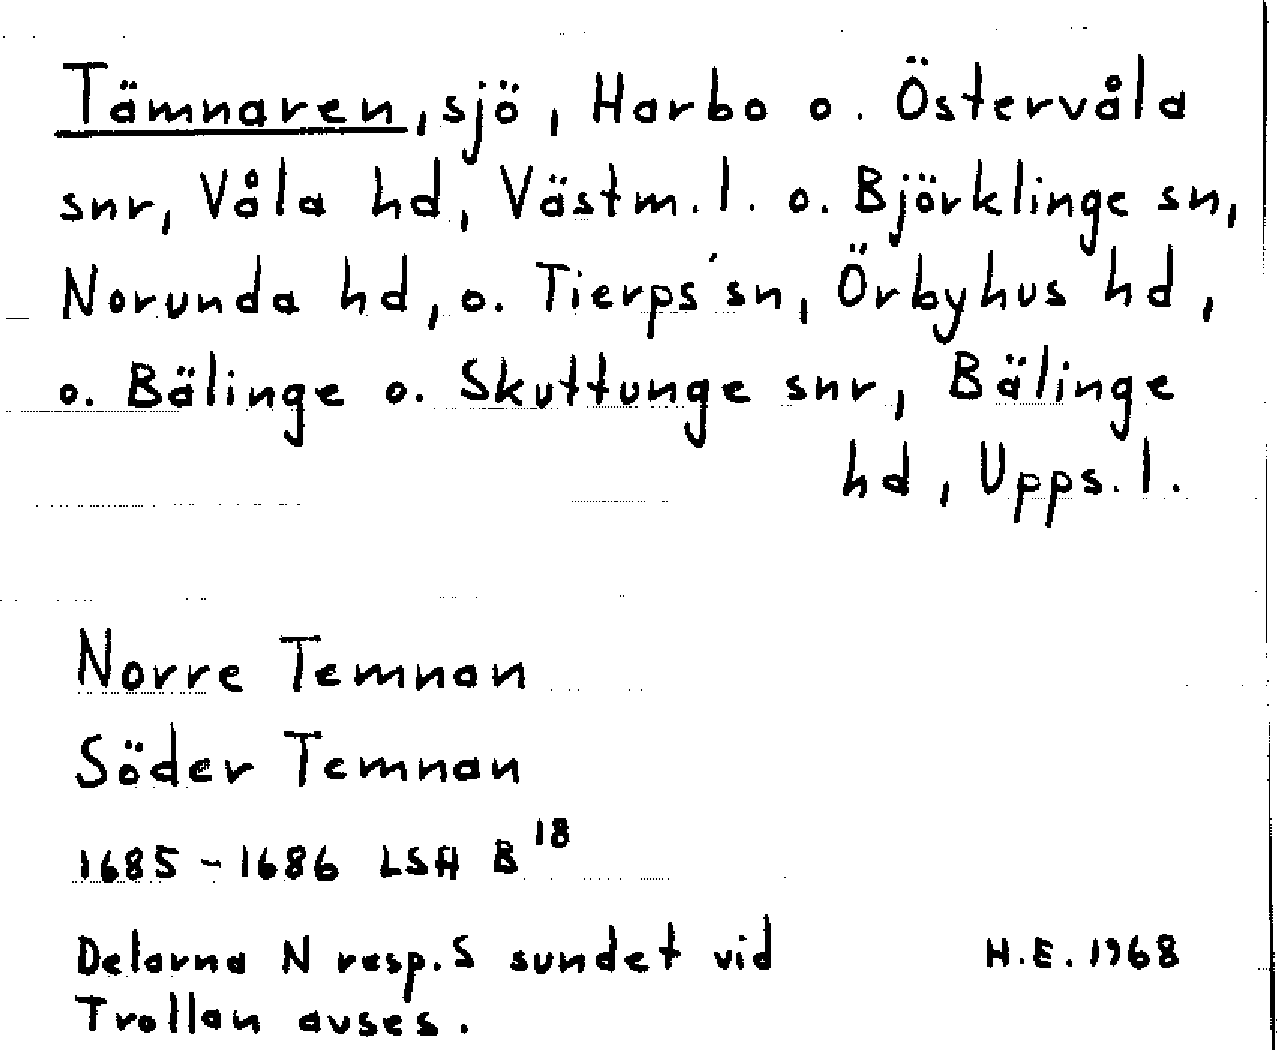 Tämnaren, sjö, Harbo o. Östervåla
snr, Våla hd, Västm. l. o. Björklinge sn,
Norunda hd, o. Tierps sn, Örbyhus hd,
o. Bälinge o. Skuttunge snr, Bälinge
hd, Upps. l.
Norre Temnan
Söder Temnan
1685-1686 LSA B¹⁸
Delarna N resp. S sundet vid
Trollan avses.
H.E. 1968